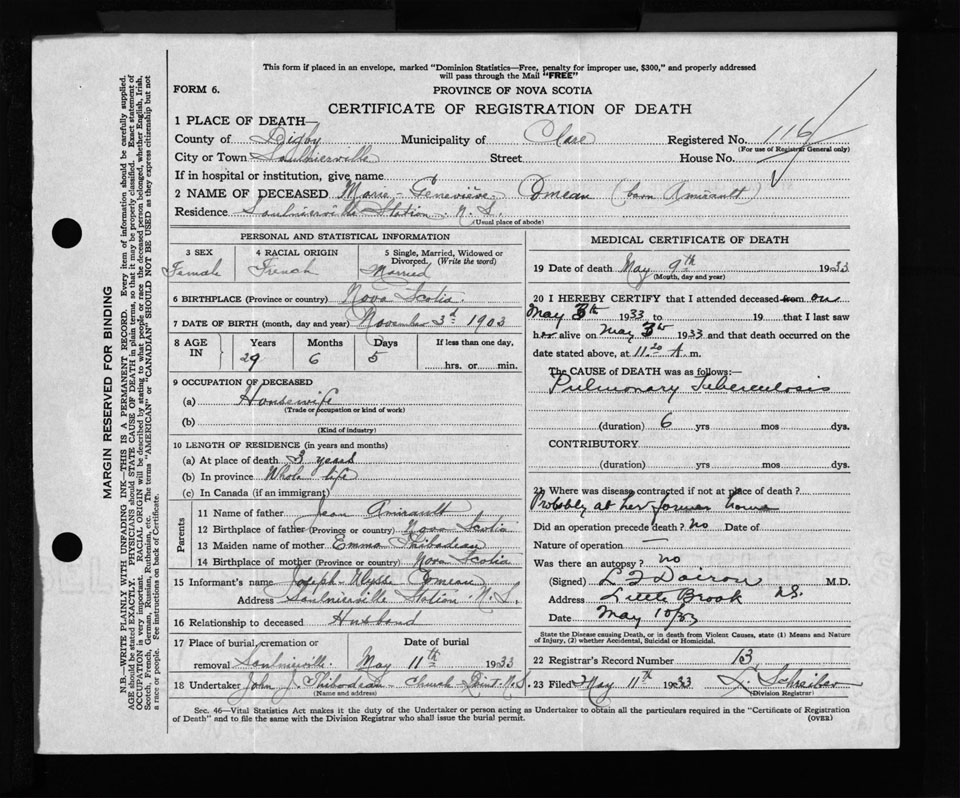 This form if placed in an envelope, marked "Dominion Statistics—Free, penalty for improper use, $300," and properly addressed
will pass through the Mail "FREE"
FORM 6.
PROVINCE OF NOVA SCOTIA
CERTIFICATE OF REGISTRATION OF DEATH
1 PLACE OF DEATH
County of Digby Municipality of Clare Registered No. 116
(For use of Registrar General only)
City or Town Saulnierville Street House No.
If in hospital or institution, give name
2 NAME OF DECEASED Marie-Geneviève Comeau (born Amirault)
Residence Saulnierville Station N.S.
(Usual place of abode)
PERSONAL AND STATISTICAL INFORMATION
3 SEX 4 RACIAL ORIGIN 5 Single, Married, Widowed or
Divorced. (Write the word)
Female French Married
6 BIRTHPLACE (Province or country) Nova Scotia.
7 DATE OF BIRTH (month, day and year) November 3d 1903
8 AGE IN Years Months Days If less than one day,
29 6 5 hrs. or min.
9 OCCUPATION OF DECEASED
(a) Housewife
(Trade or occupation or kind of work)
(b)
(Kind of industry)
10 LENGTH OF RESIDENCE (in years and months)
(a) At place of death 3 years
(b) In province Whole life
(c) In Canada (if an immigrant)
Parents
11 Name of father Jean Amirault
12 Birthplace of father (Province or country) Nova Scotia
13 Maiden name of mother Emma Thibodeau
14 Birthplace of mother (Province or country) Nova Scotia
15 Informant's name Joseph-Ulysse Comeau
Address Saulnierville Station N.S.
16 Relationship to deceased Husband
17 Place of burial, cremation or Date of burial
removal Saulnierville. May 11th 1933
18 Undertaker John J. Thibodeau - Church Point N.S.
(Name and address)
MEDICAL CERTIFICATE OF DEATH
19 Date of death May 9th 1933
(Month, day and year)
20 I HEREBY CERTIFY that I attended deceased from on
May 3th 1933 to 19 that I last saw
her alive on May 3th 1933 and that death occurred on the
date stated above, at 11.20 A. m.
The CAUSE of DEATH was as follows:—
Pulmonary Tuberculosis
(duration) 6 yrs mos dys.
CONTRIBUTORY
(duration) yrs. mos. dys.
21 Where was disease contracted if not at place of death?
Probably at her former home
Did an operation precede death? No Date of
Nature of operation —
Was there an autopsy? no
(Signed) M.D.
Address Little Brook N.S.
Date May 10/33
State the Disease causing Death, or in death from Violent Causes, state (1) Means and Nature
of Injury, (2) whether Accidental, Suicidal or Homicidal.
22 Registrar's Record Number 13
23 Filed May 11th 1933
(Division Registrar)
Sec. 46—Vital Statistics Act makes it the duty of the Undertaker or person acting as Undertaker to obtain all the particulars required in the "Certificate of Registration
of Death" and to file the same with the Division Registrar who shall issue the burial permit. (OVER)
MARGIN RESERVED FOR BINDING
N.B.—WRITE PLAINLY WITH UNFADING INK—THIS IS A PERMANENT RECORD. Every item of information should be carefully supplied.
AGE should be stated EXACTLY. PHYSICIANS should STATE CAUSE OF DEATH in plain terms, so that it may be properly classified. Exact statement of
OCCUPATION is very important. RACIAL ORIGIN will be described by stating to what people or race the deceased person belonged, whether English, Irish,
Scotch, French, German, Russian, Ruthenian, etc. The terms "AMERICAN" or "CANADIAN" SHOULD NOT BE USED as they express citizenship but not
a race or people. See instructions on back of Certificate.